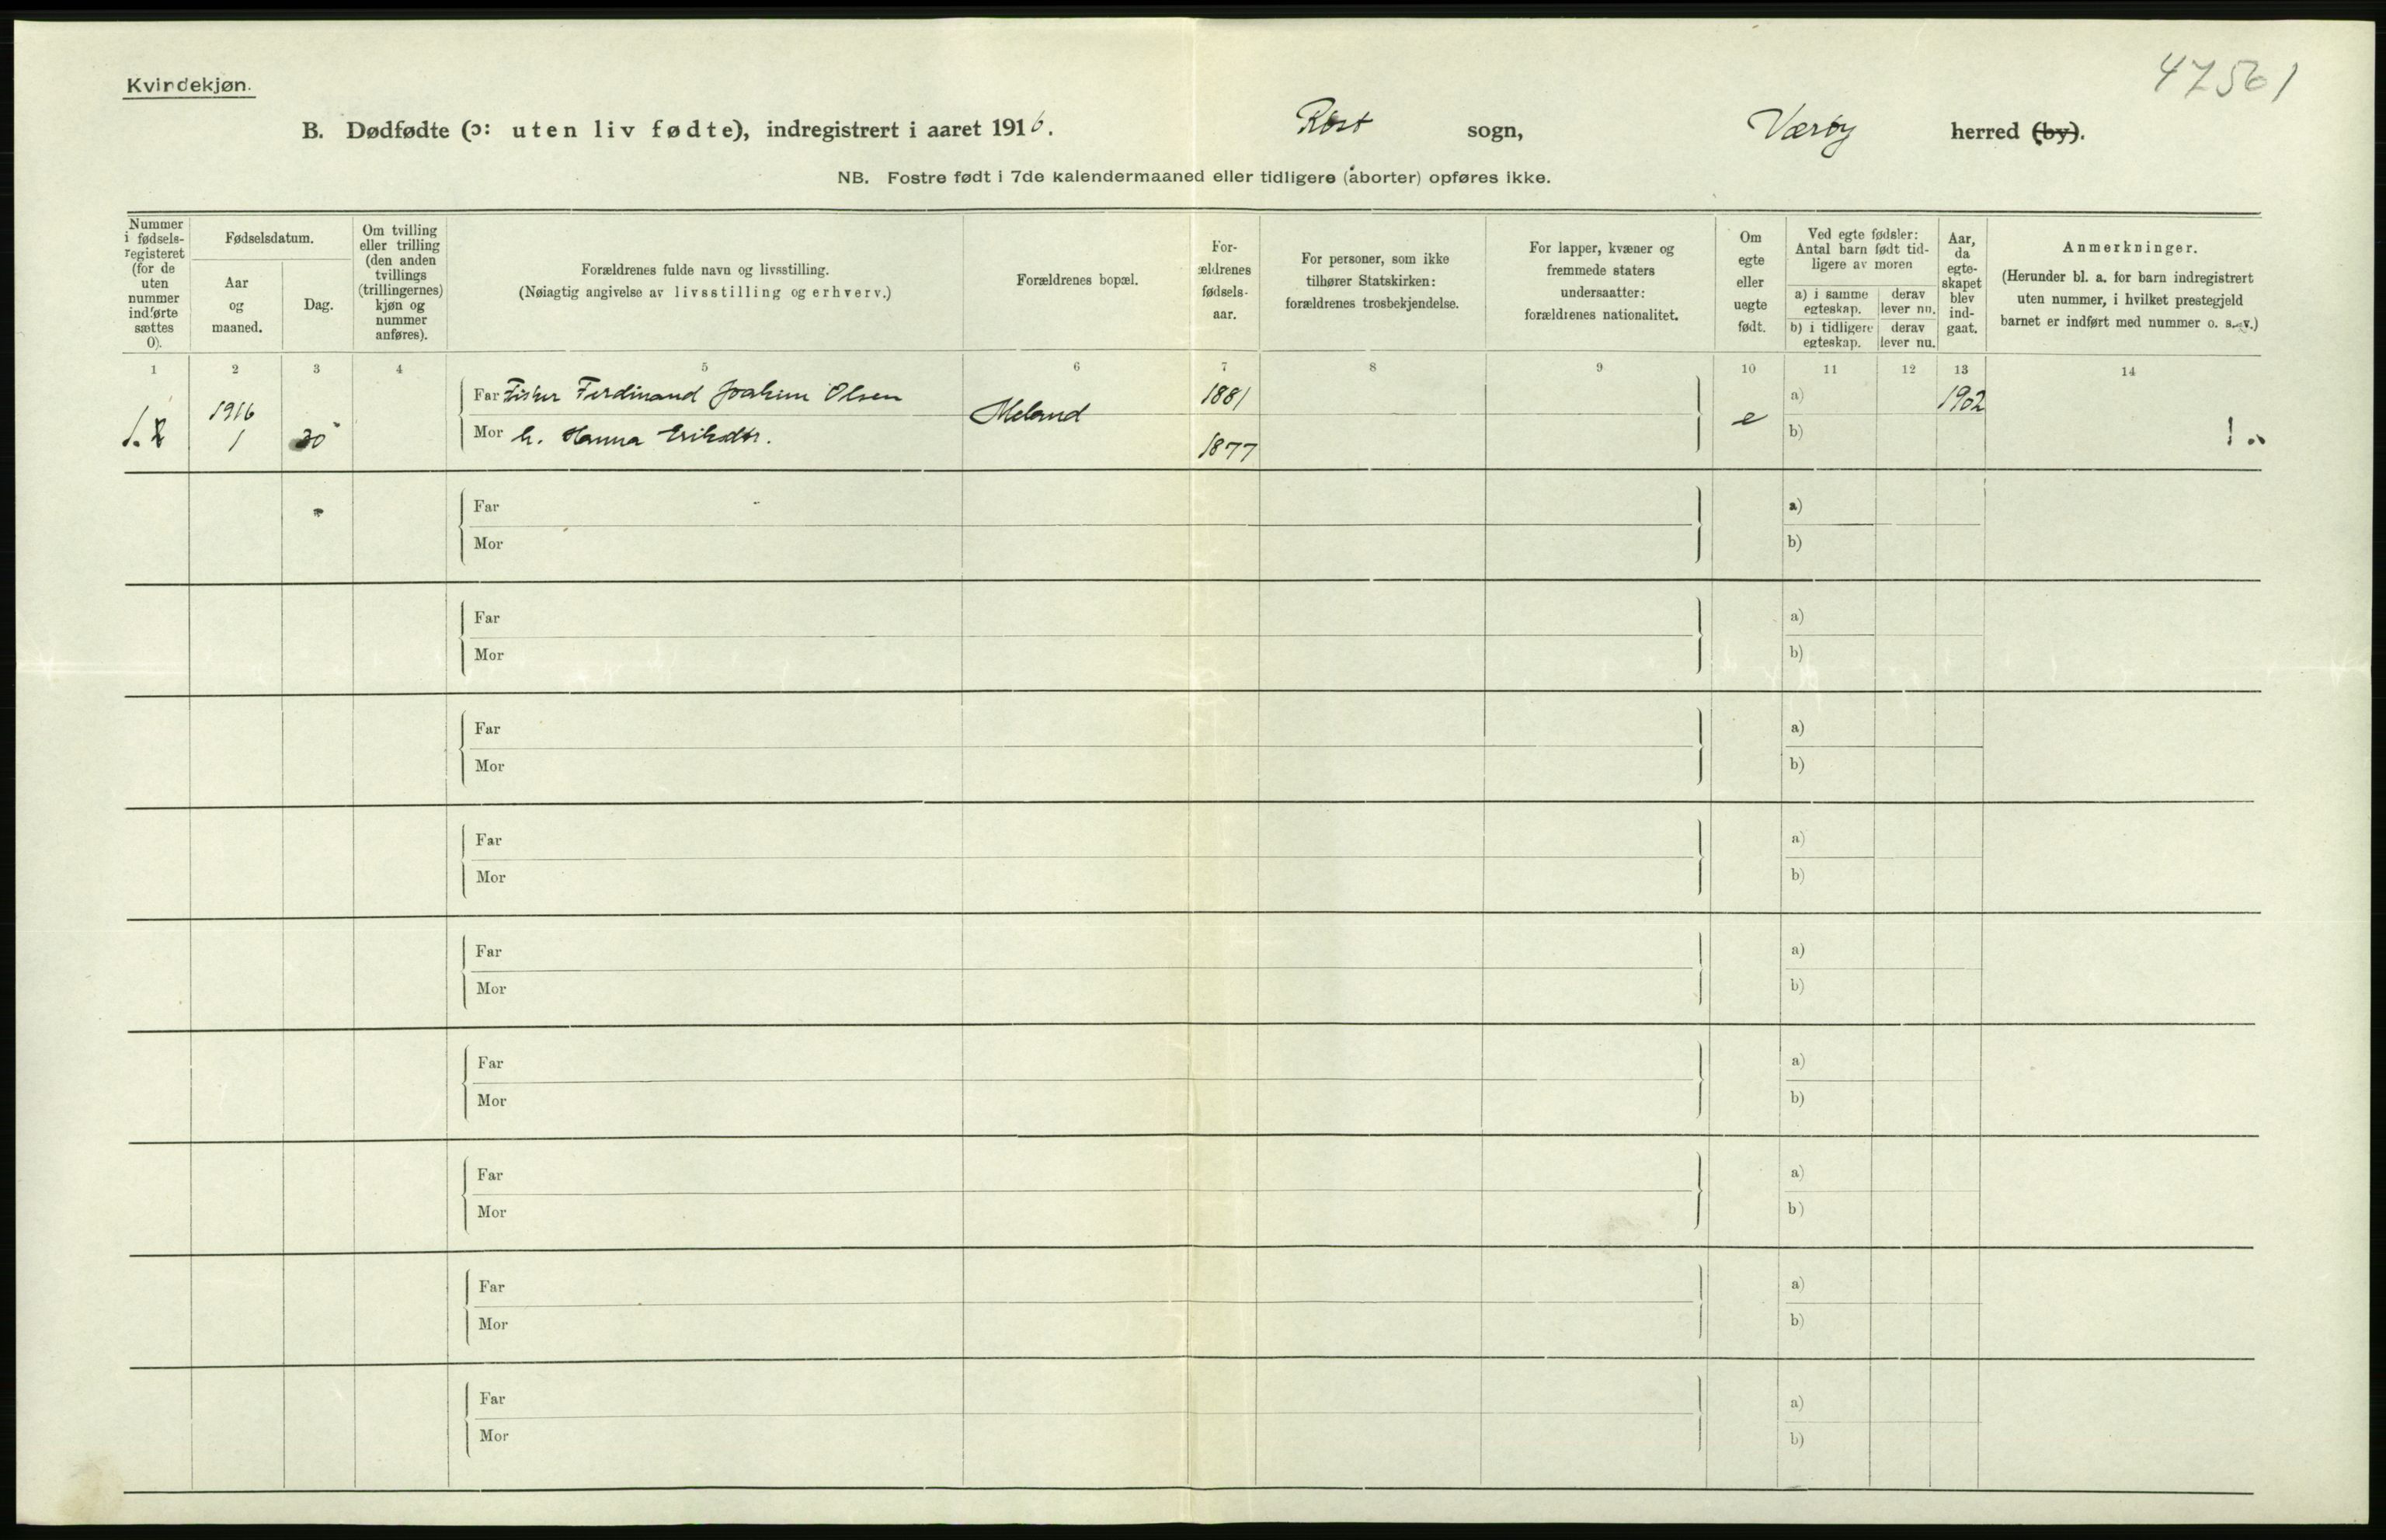 Kvindekjøn.
47561
B. Dødfødte (ɔ: uten liv fødte), indregistrert i aaret 1916. Röst sogn,Væröy herred (by).
NB. Fostre født i 7de kalendermaaned eller tidligere (aborter) opføres ikke.
Nummer i fødsels-registeret (for de uten nummer indførte sættes 0).
Fødselsdatum.
Aar og maaned.
Dag.
Om tvilling eller trilling (den anden tvillings (trillingernes) kjøn og nummer anføres).
Forældrenes fulde navn og livsstilling.
(Nøiagtig angivelse av livsstilling og erhverv.)
Forældrenes bopæl.
For-ældrenes fødsels-aar.
For personer, som ikke tilhører Statskirken: forældrenes trosbekjendelse.
For lapper, kvæner og fremmede staters undersaatter: forældrenes nationalitet.
Om egte eller uegte født.
Ved egte fødsler: Antal barn født tid-ligere av moren
a) i samme egteskap.
derav lever nu.
b) i tidligere egteskap.
derav lever nu.
Aar, da egte-skapet blev ind-gaat.
Anmerkninger.
(Herunder bl. a. for barn indregistrert uten nummer, i hvilket prestegjeld barnet er indført med nummer o. s. v.)
1 2 3 4 5 6 7 8 9 10 11 12 13 14
Far Fisker Ferdinand Joakim Olsen 1881 a) 1902
1916 Meland e
1. 1 30 Mor h. Hanna Eriksdtr. 1877 b)
Far a)
Mor b)
Far a)
Mor b)
Far a)
Mor b)
Far a)
Mor b)
Far a)
Mor b)
Far a)
Mor b)
Far a)
Mor b)
Far a)
Mor b)
Far a)
Mor b)